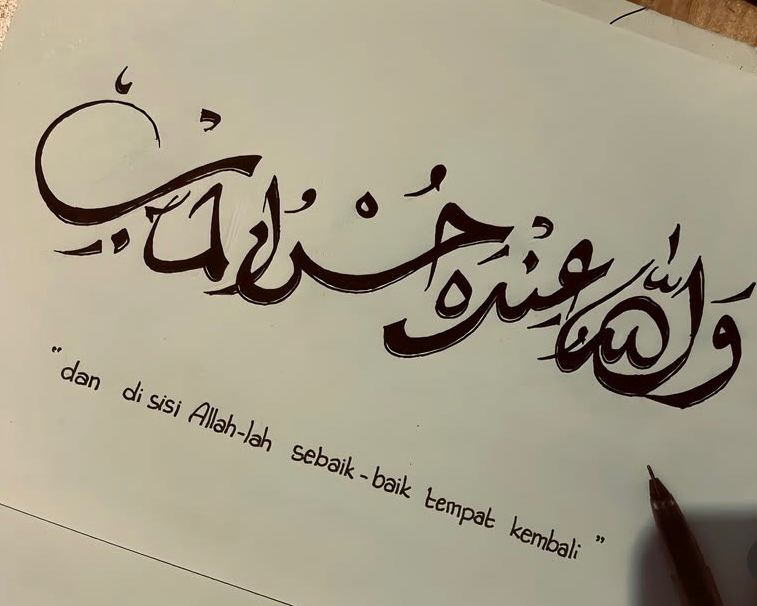 وَاللّٰه عِنْدَهُ حُسْنُ الْمَآبِ
"dan di sisi Allah-lah sebaik-baik tempat kembali"